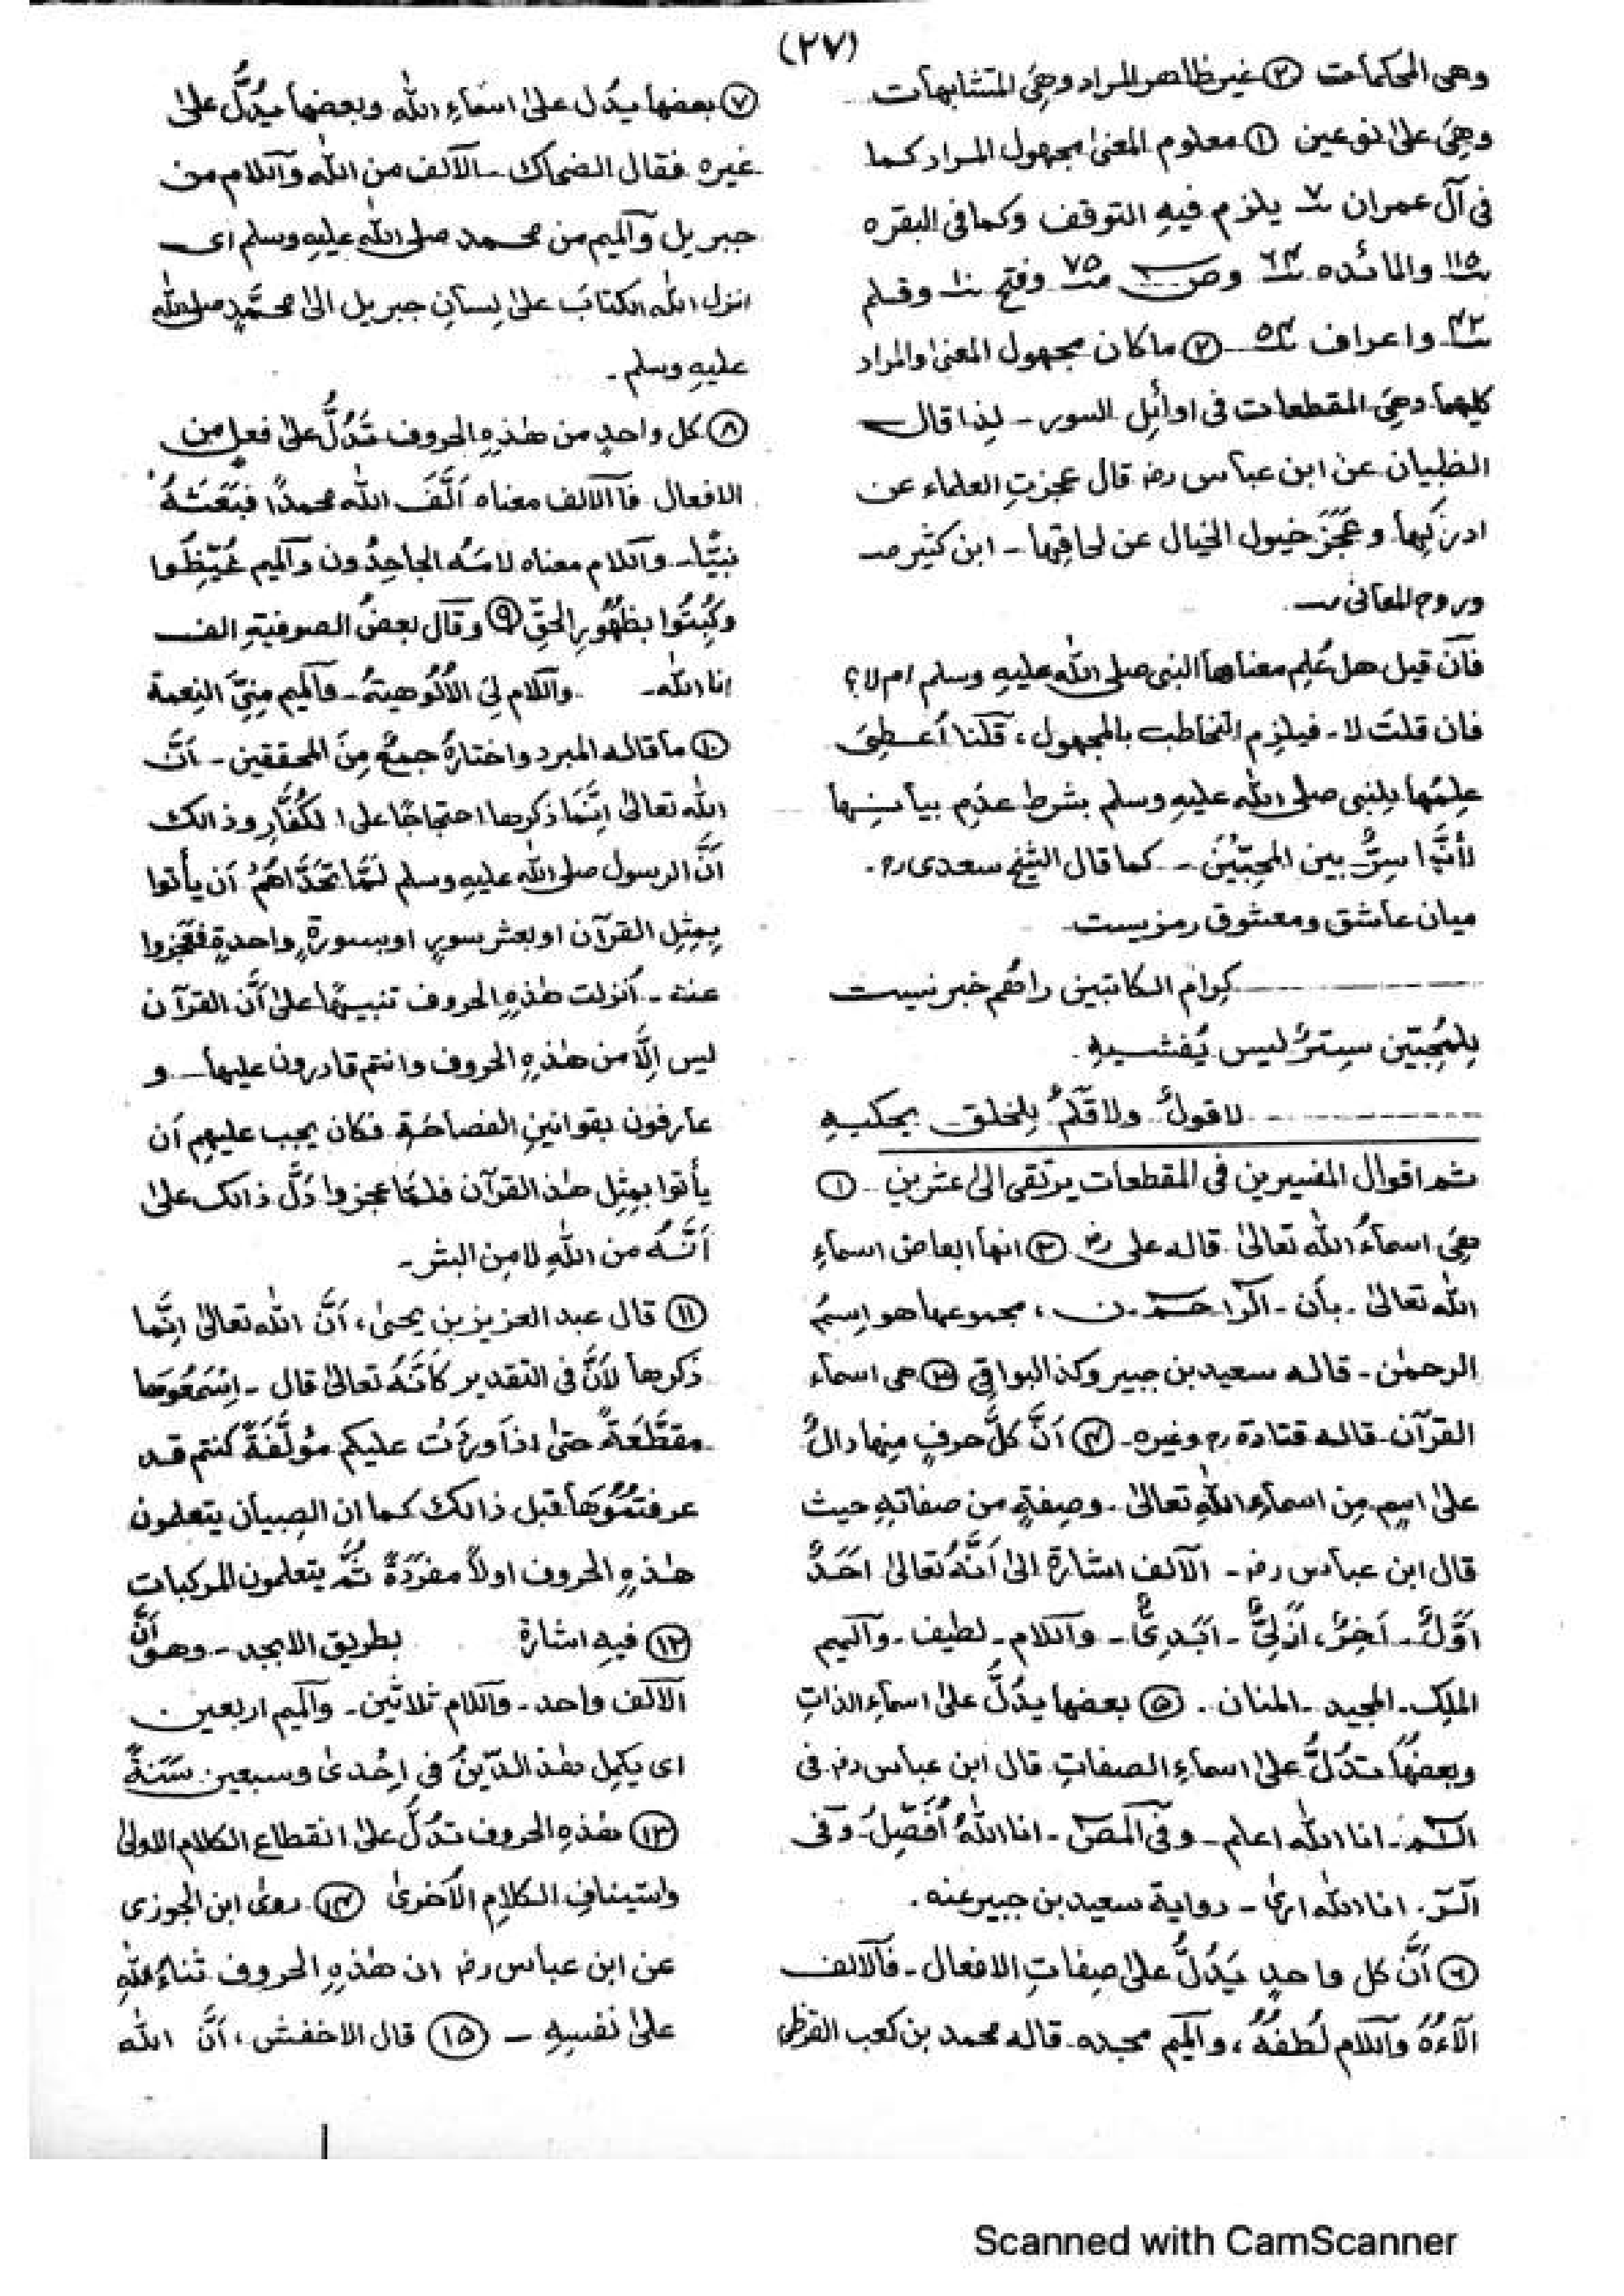 (٢٧)
وهى المحكمات ② غير ظاهر المراد وهِىَ المتشابهات
وهِىَ علىٰ نوعين ① معلوم المعنىٰ مجهول المراد كما
فى آل عمران ٧ يلزم فيهِ التوقف وكما فى البقره
١١٥ والمائده ٦٤ وص ٧٥ وفتح ١٠ وقلم
٤٢ واعراف ٥٤ ② ماكان مجهول المعنىٰ والمراد
كليهما وهِىَ المقطعات فى اوائِل السور - لِذا قال
الظبيان عن ابن عباس رض قال عجزتِ العلماء عن
ادركِها وعَجَزَ خيول الخيال عن لحاقِها - ابن كثير ص
وروح المعانى ص
فان قيل هل عُلِم معناها النبى صلى الله عليهِ وسلم ام لا؟
فان قلتَ لا - فيلزم التخاطب بالمجهول، قلنا أُعطِىَ
عِلمُها لِلنبى صلى الله عليهِ وسلم بشرط عدَمِ بيانِها
لأنَّها سِرٌّ بين المحِبّيْنَ - كما قال الشيخ سعدى رح.
ميان عاشق ومعشوق رمزيست
كِرام الكاتبين را هم خبر نيست
لِلمُحِبّين سِترٌ ليس يُفشيهِ.
لا قولٌ ولا قلمٌ لِلخلق يحكيهِ
ثم اقوال المفسِرين فى المقطعات يرتقى الى عشرين - ①
هِىَ اسماءُ الله تعالىٰ قاله على رض ② انها ابعاض اسماءِ
الله تعالىٰ - بأن - الٓرٰ حٰمٓ - ن، مجموعها هو اِسمُ
الرحمٰن - قاله سعيد بن جبير وكذ البواقِى ③ هى اسماء
القرآن - قاله قتادة رح وغيره - ④ اَنَّ كلَّ حرفٍ مِنها دالٌّ
علىٰ اسمٍ مِن اسماءِ اللهِ تعالىٰ - وصِفةٍ من صفاتهِ حيث
قال ابن عباس رض - الآلف اشارة الىٰ اَنَّهُ تعالىٰ احَدٌ
اَوَّلٌ - اَخِرٌ، اَزلِىٌّ - ابَدِىٌّ - وآللام - لطيف - وآلميم
الملِك - المجيد - المنان . ⑤ بعضها يدُلُّ علىٰ اسماءِ الذاتِ
وبعضُها تدُلُّ علىٰ اسماءِ الصفاتِ قال ابن عباس رض فى
الٓمٓ - انا الله اعلم - وفى الٓمٓصٓ - انا اللهُ اُفَصِّلُ - وفى
الٓرٰ . انا الله ارىٰ - رواية سعيد بن جبير عنه .
⑥ اَنَّ كل واحدٍ يَدُلُّ علىٰ صِفاتِ الافعال - فآلالف
آلاءُهُ وآللام لُطفُهُ، وآلميم مجده - قاله محمد بن كعب القرظى
⑦ بعضها يدُل علىٰ اسماءِ الله وبعضها يدُلُّ علىٰ
غيره فقال الضحاك - الآلف من الله وآللام من
جبريل وآلميم من محمد صلى الله عليهِ وسلم اى
انزل الله الكتابَ علىٰ لِسانِ جبريل الىٰ محمَّدٍ صلى الله
عليهِ وسلم -
⑧ كل واحدٍ من هٰذهِ الحروف تَدُلُّ علىٰ فعلٍ من
الافعال فآالالف معناه اَلَّفَ الله محمدًا فبَعَثَهُ
نبيًّا - وآللام معناه لامَهُ الجاحِدُون وآلميم غُيِّظُوا
وكُبِتُوا بظُهُورِ الحقّ ⑨ وقال بعضُ الصوفيةِ الف
انا الله - وآللام لِى الأُلُوهيتهُ - وآلميم مِنِّى النِعمة
⑩ ما قاله المبرد واختارهُ جمعٌ مِنَ المحققين - اَنَّ
الله تعالىٰ اِنَّمَا ذكرها احتجاجًا على الكُفَّارِ وذالك
اَنَّ الرسول صلى الله عليهِ وسلم لَمَّا تَحَدَّاهُمْ اَن يأتوا
بِمِثِلِ القرآن او بعشر سورٍ او بِسورةٍ واحدةٍ فعَجَزوا
عنه - اُنزِلت هٰذهِ الحروف تنبيهًا علىٰ اَنَّ القرآن
ليس اِلَّا من هٰذهِ الحروف وانتم قادرون عليها - و
عارفون بقوانينِ الفصاحَة فكان يجب عليهِم اَن
يأتوا بِمِثِل هٰذ القرآن فلمَّا عجزوا دَلَّ ذالك علىٰ
اَنَّهُ من اللهِ لا مِن البشر -
⑪ قال عبد العزيز بن يحيىٰ، اَنَّ الله تعالىٰ اِنَّما
ذكرها لأَنَّ فى التقدير كَأَنَّهُ تعالىٰ قال - اِسْمَعُوها
مقطَّعَةً حتىٰ اذَا وردَت عليكم مؤلَّفَةً كنتم قد
عرفتمُوْهَا قبل ذالك كما ان الصِبيان يتعلمون
هٰذهِ الحروف اولاً مفرَدَةً ثُمَّ يتعلمون المركبات
⑫ فيهِ اشارة بطريق الابجد - وهو اَنَّ
الآلف واحد - وآللام ثلاثين - وآلميم اربعين
اى يكمِل هٰذ الدّينُ فى اِحْدىٰ وسبعين سَنَةً
⑬ هٰذهِ الحروف تدُلُّ علىٰ انقطاع الكلام الاولىٰ
واستينافِ الكلامِ الأُخرىٰ ⑭ روىٰ ابن الجوزى
عن ابن عباس رض ان هٰذهِ الحروف ثناءُ اللهِ
علىٰ نفسِهِ - ⑮ قال الاخفش، اَنَّ الله
Scanned with CamScanner